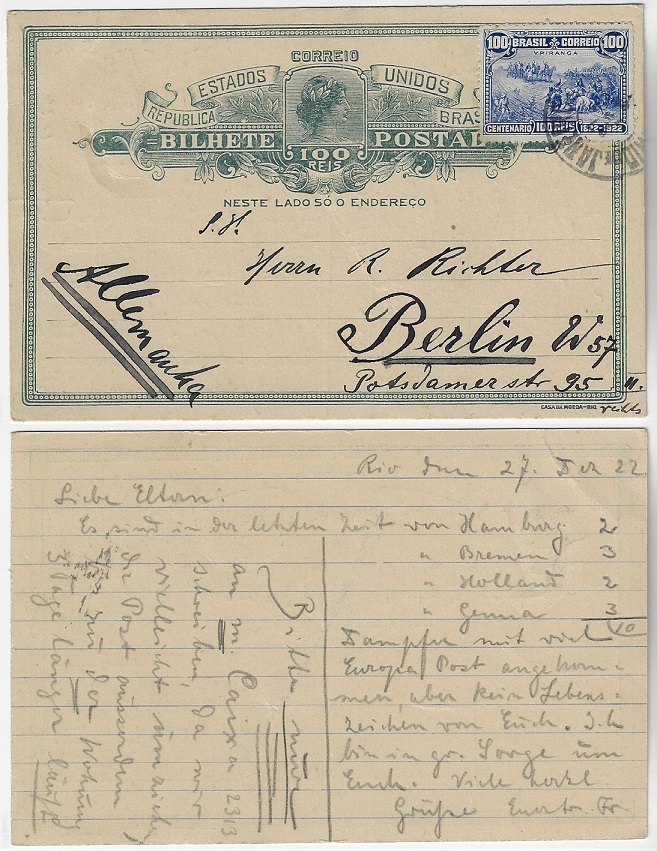 CORREIO
ESTADOS UNIDOS
REPUBLICA BRAS
BILHETE POSTAL
100
REIS
100 BRASIL CORREIO 100
YPIRANGA
CENTENARIO 100 REIS 1822-1922
NESTE LADO SÓ O ENDEREÇO
S. H.
Herrn R. Richter
Allemanha
Berlin W 57
Potsdamerstr 95 II.
rechts
CASA DA MOEDA-RIO
Rio den 27. Dez 22
Liebe Eltern:
Es sind in der letzten Zeit von Hamburg 2
" Bremen 3
" Holland 2
" Genua 3
10
Dampfer mit viel
Europa Post angekom-
men, aber kein Lebens-
zeichen von Euch. Ich
bin in gr. Sorge um
Euch. Viele herzl
Grüße Fr.
Bitte nur
an m. Caixa 2313
schreiben, da wir
vielleicht umziehen,
die Post ausserdem
zu der Wohnung
3 Tage länger läuft